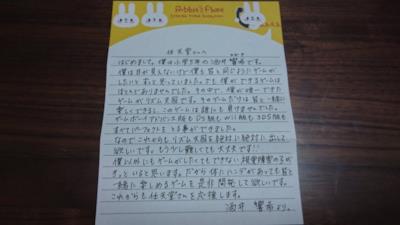 Rabbit's Phone
任天堂さんへ
ひびき
はじめまして。僕は小学5年の酒井響希です。
僕は目が見えないけど僕も皆と同じようにゲームが
したいとずっと思っていました。でも僕ができるゲームは
ほとんどありませんでした。その中で、僕が唯一できた
ゲームがリズム天国です。そのゲームだけは皆と一緒に
楽しくできるし、このゲームは誰にも負けませんでした。
ゲームボーイアドバンス版もDS版もWii版も3DS版も
すべてパーフェクトをとる事ができました。
なのでこれからもリズム天国を絶対に絶対に出して
欲しいです。もう少し難しくても大丈夫です!!
僕以外にもゲームがしたくてもできない視覚障害の子が
きっといると思います。だから体にハンデがあっても皆と
一緒に楽しめるゲームを是非開発して欲しいです。
これからも任天堂さんを応援します。
酒井 響希より。